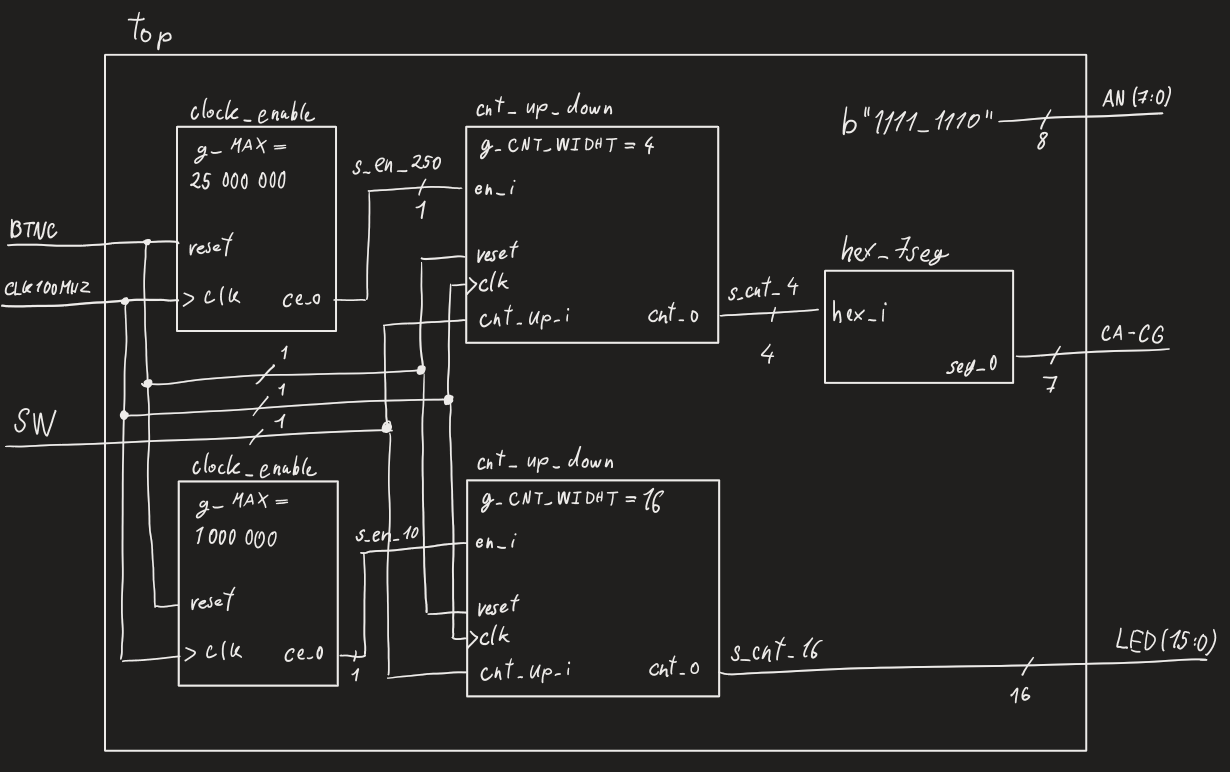 top
clock_enable
g_MAX =
25 000 000
reset
> clk
ce_o
s_en_250
1
cnt_up_down
g_CNT_WIDHT = 4
en_i
reset
>clk
cnt_up_i
cnt_o
s_cnt_4
4
hex_7seg
hex_i
seg_o
b"1111_1110"
8
AN (7:0)
CA-CG
7
BTNC
CLK100MHZ
SW
1
1
1
clock_enable
g_MAX =
1 000 000
reset
> clk
ce_o
1
s_en_10
cnt_up_down
g_CNT_WIDHT = 16
en_i
reset
>clk
cnt_up_i
cnt_o
s_cnt_16
16
LED (15:0)